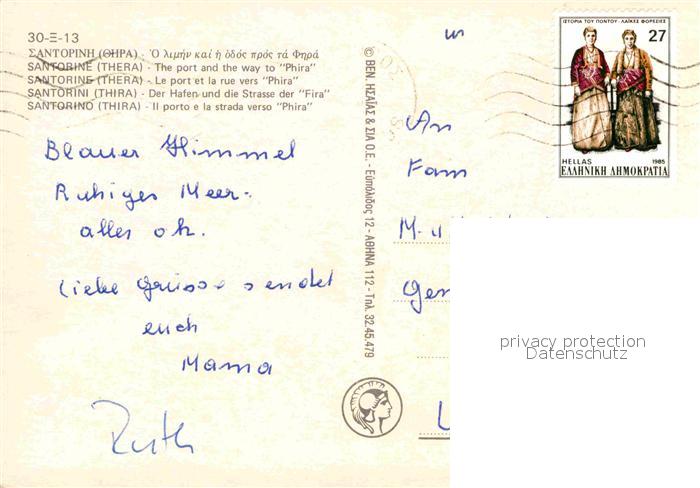 30-Ξ-13
ΣΑΝΤΟΡΙΝΗ (ΘΗΡΑ) - Ὁ λιμήν καί ἡ ὁδός πρός τά Φηρά
SANTORINE (THERA) - The port and the way to "Phira"
SANTORINE (THERA) - Le port et la rue vers "Phira"
SANTORINI (THIRA) - Der Hafen und die Strasse der "Fira"
SANTORINO (THIRA) - Il porto e la strada verso "Phira"
Blauer Himmel
Ruhiges Meer.
alles ok.
Liebe Grüsse sendet
euch
Mama
Ruth
© ΒΕΝ. ΗΣΑΪΑΣ & ΣΙΑ Ο.Ε. - Εὐπόλιδος 12 - ΑΘΗΝΑ 112 - Τηλ. 32.45.479
ΙΣΤΟΡΙΑ ΤΟΥ ΠΟΝΤΟΥ - ΛΑΪΚΕΣ ΦΟΡΕΣΙΕΣ
27
HELLAS 1985
ΕΛΛΗΝΙΚΗ ΔΗΜΟΚΡΑΤΙΑ
An
Fam
privacy protection
Datenschutz